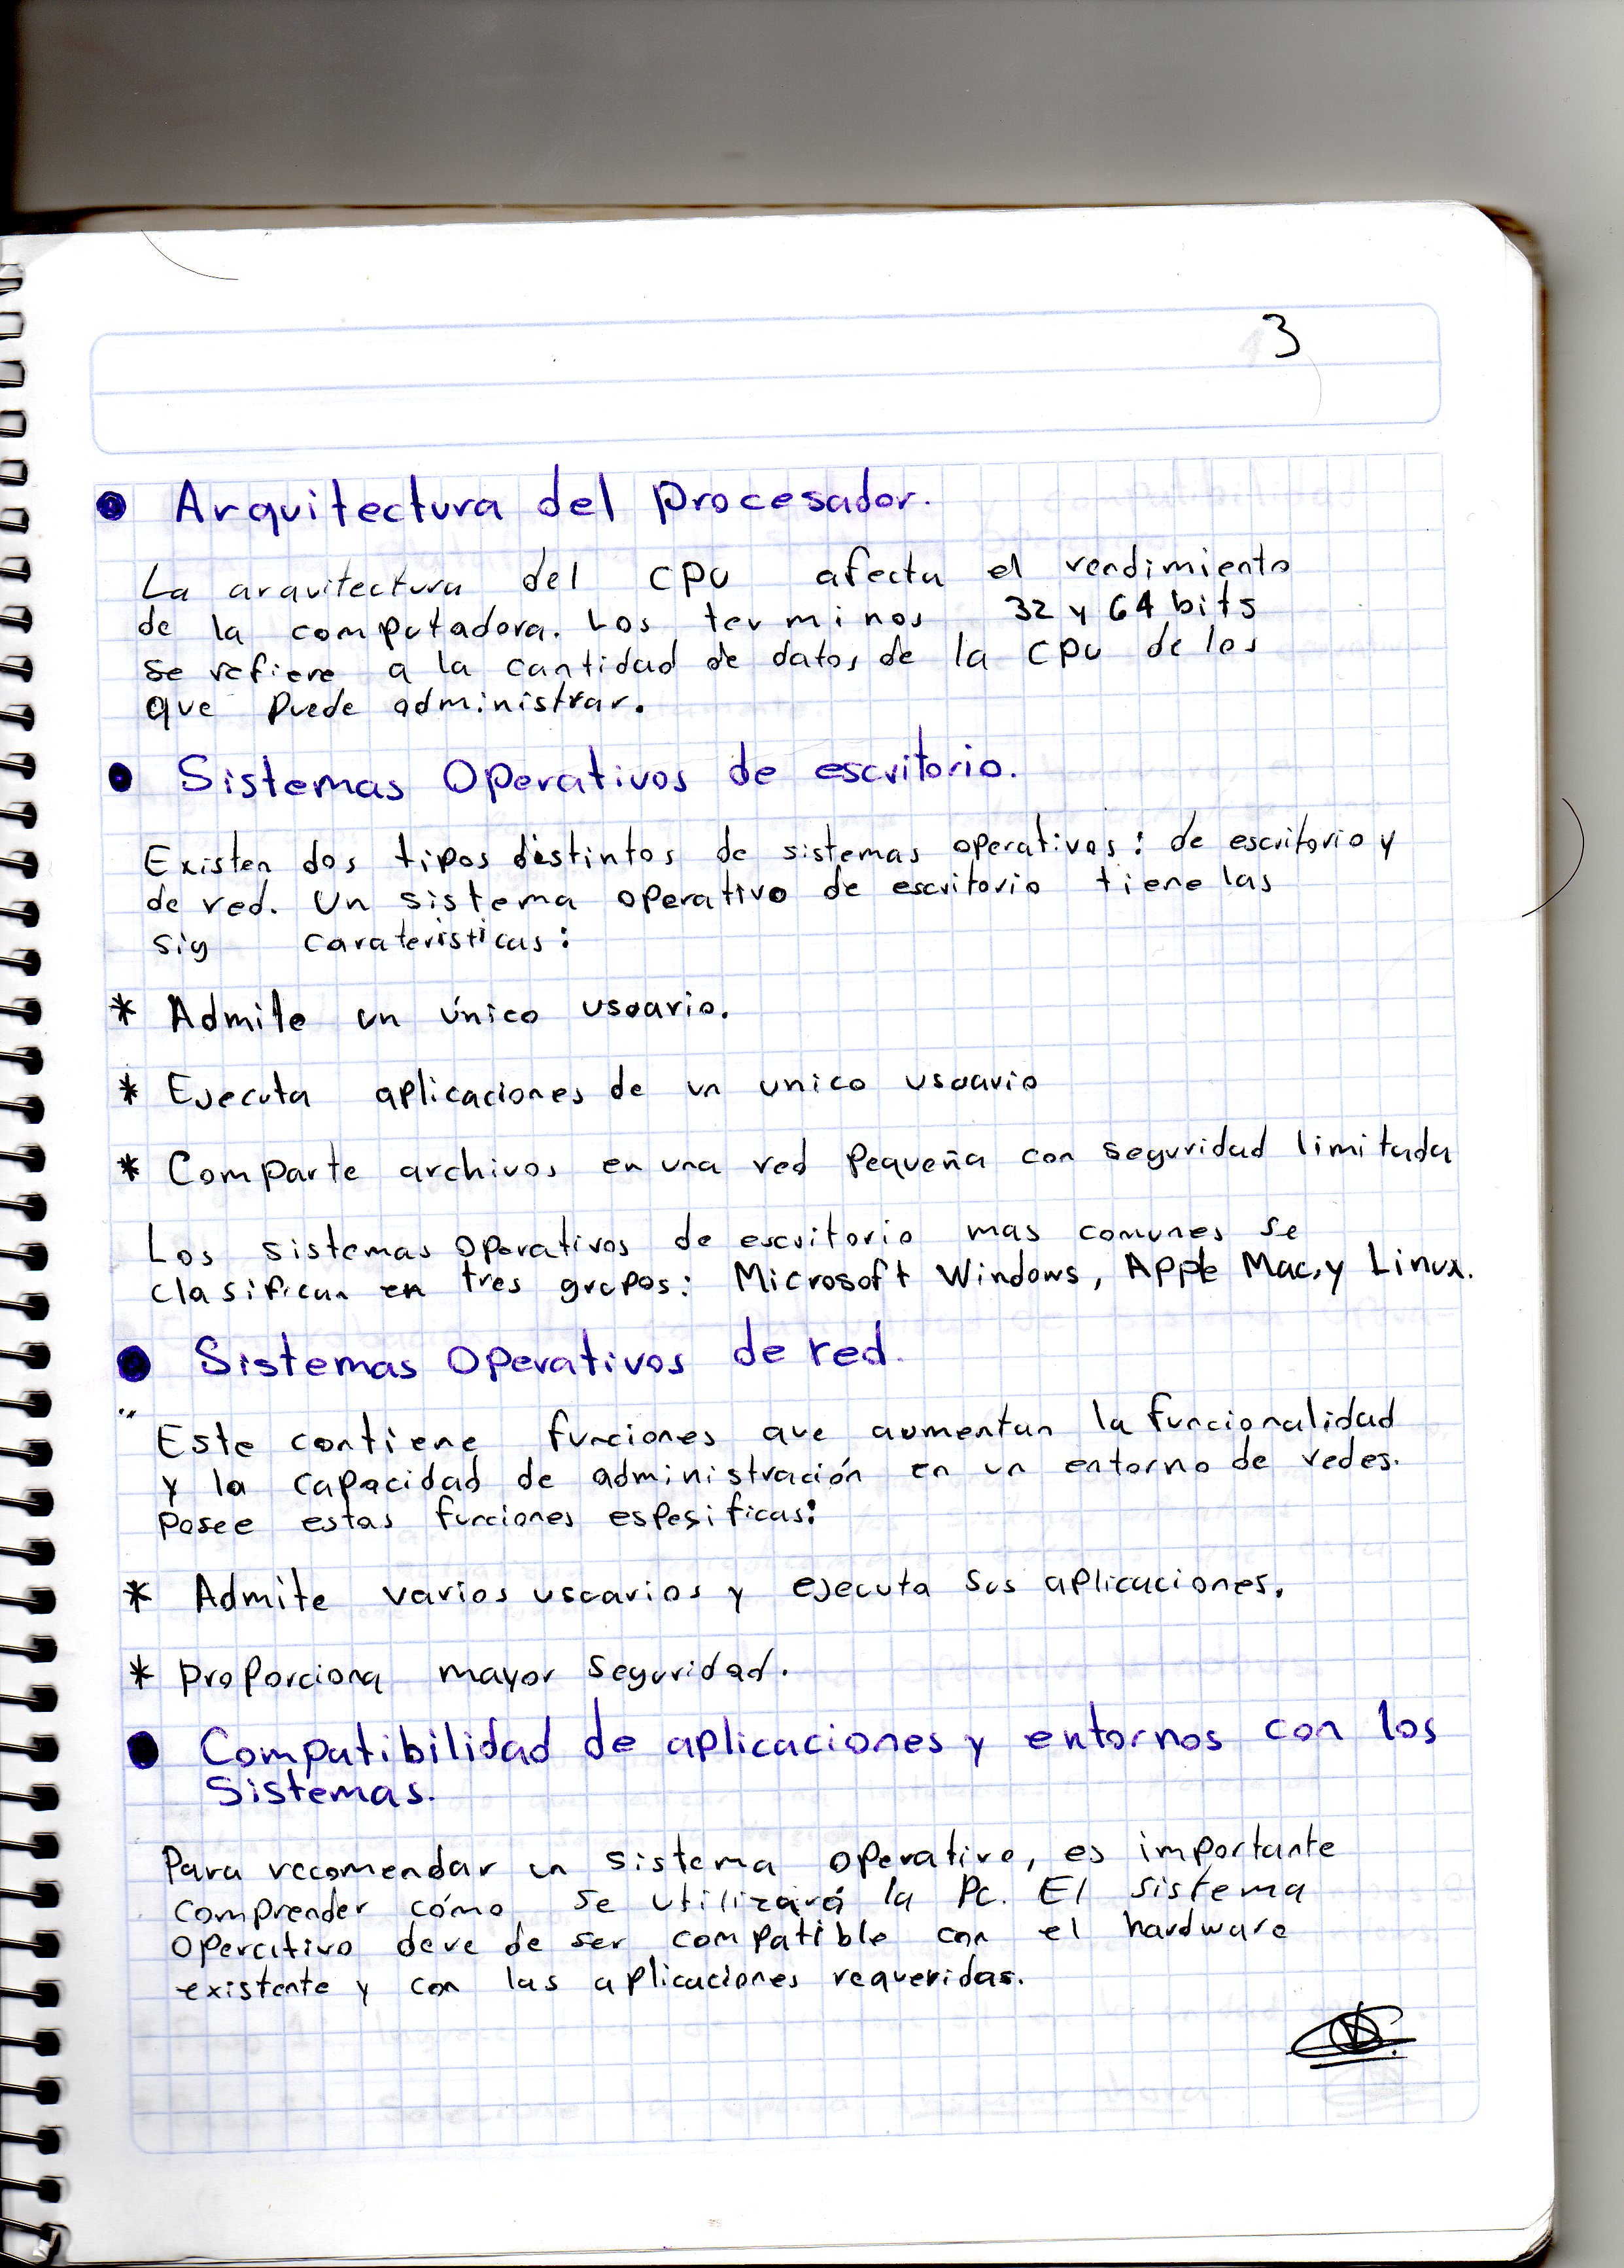 3
● Arquitectura del procesador.
La arquitectura del CPU afecta el rendimiento
de la computadora. Los terminos 32 y 64 bits
se refiere a la cantidad de datos de la CPU de los
que puede administrar.
● Sistemas Operativos de escritorio.
Existen dos tipos distintos de sistemas operativos: de escritorio y
de red. Un sistema operativo de escritorio tiene las
sig carateristicas:
* Admite un único usuario.
* Ejecuta aplicaciones de un unico usuario
* Comparte archivos en una red pequeña con seguridad limitada
Los sistemas operativos de escritorio mas comunes se
clasifican en tres grupos: Microsoft Windows, Apple Mac, y Linux.
● Sistemas Operativos de red.
Este contiene funciones que aumentan la funcionalidad
y la capacidad de administración en un entorno de redes.
Posee estas funciones espesificas:
* Admite varios usuarios y ejecuta sus aplicaciones.
* Proporciona mayor seguridad.
● Compatibilidad de aplicaciones y entornos con los
Sistemas.
Para recomendar un sistema operativo, es importante
comprender cómo se utilizará la Pc. El sistema
operativo deve de ser compatible con el hardware
existente y con las aplicaciones requeridas.